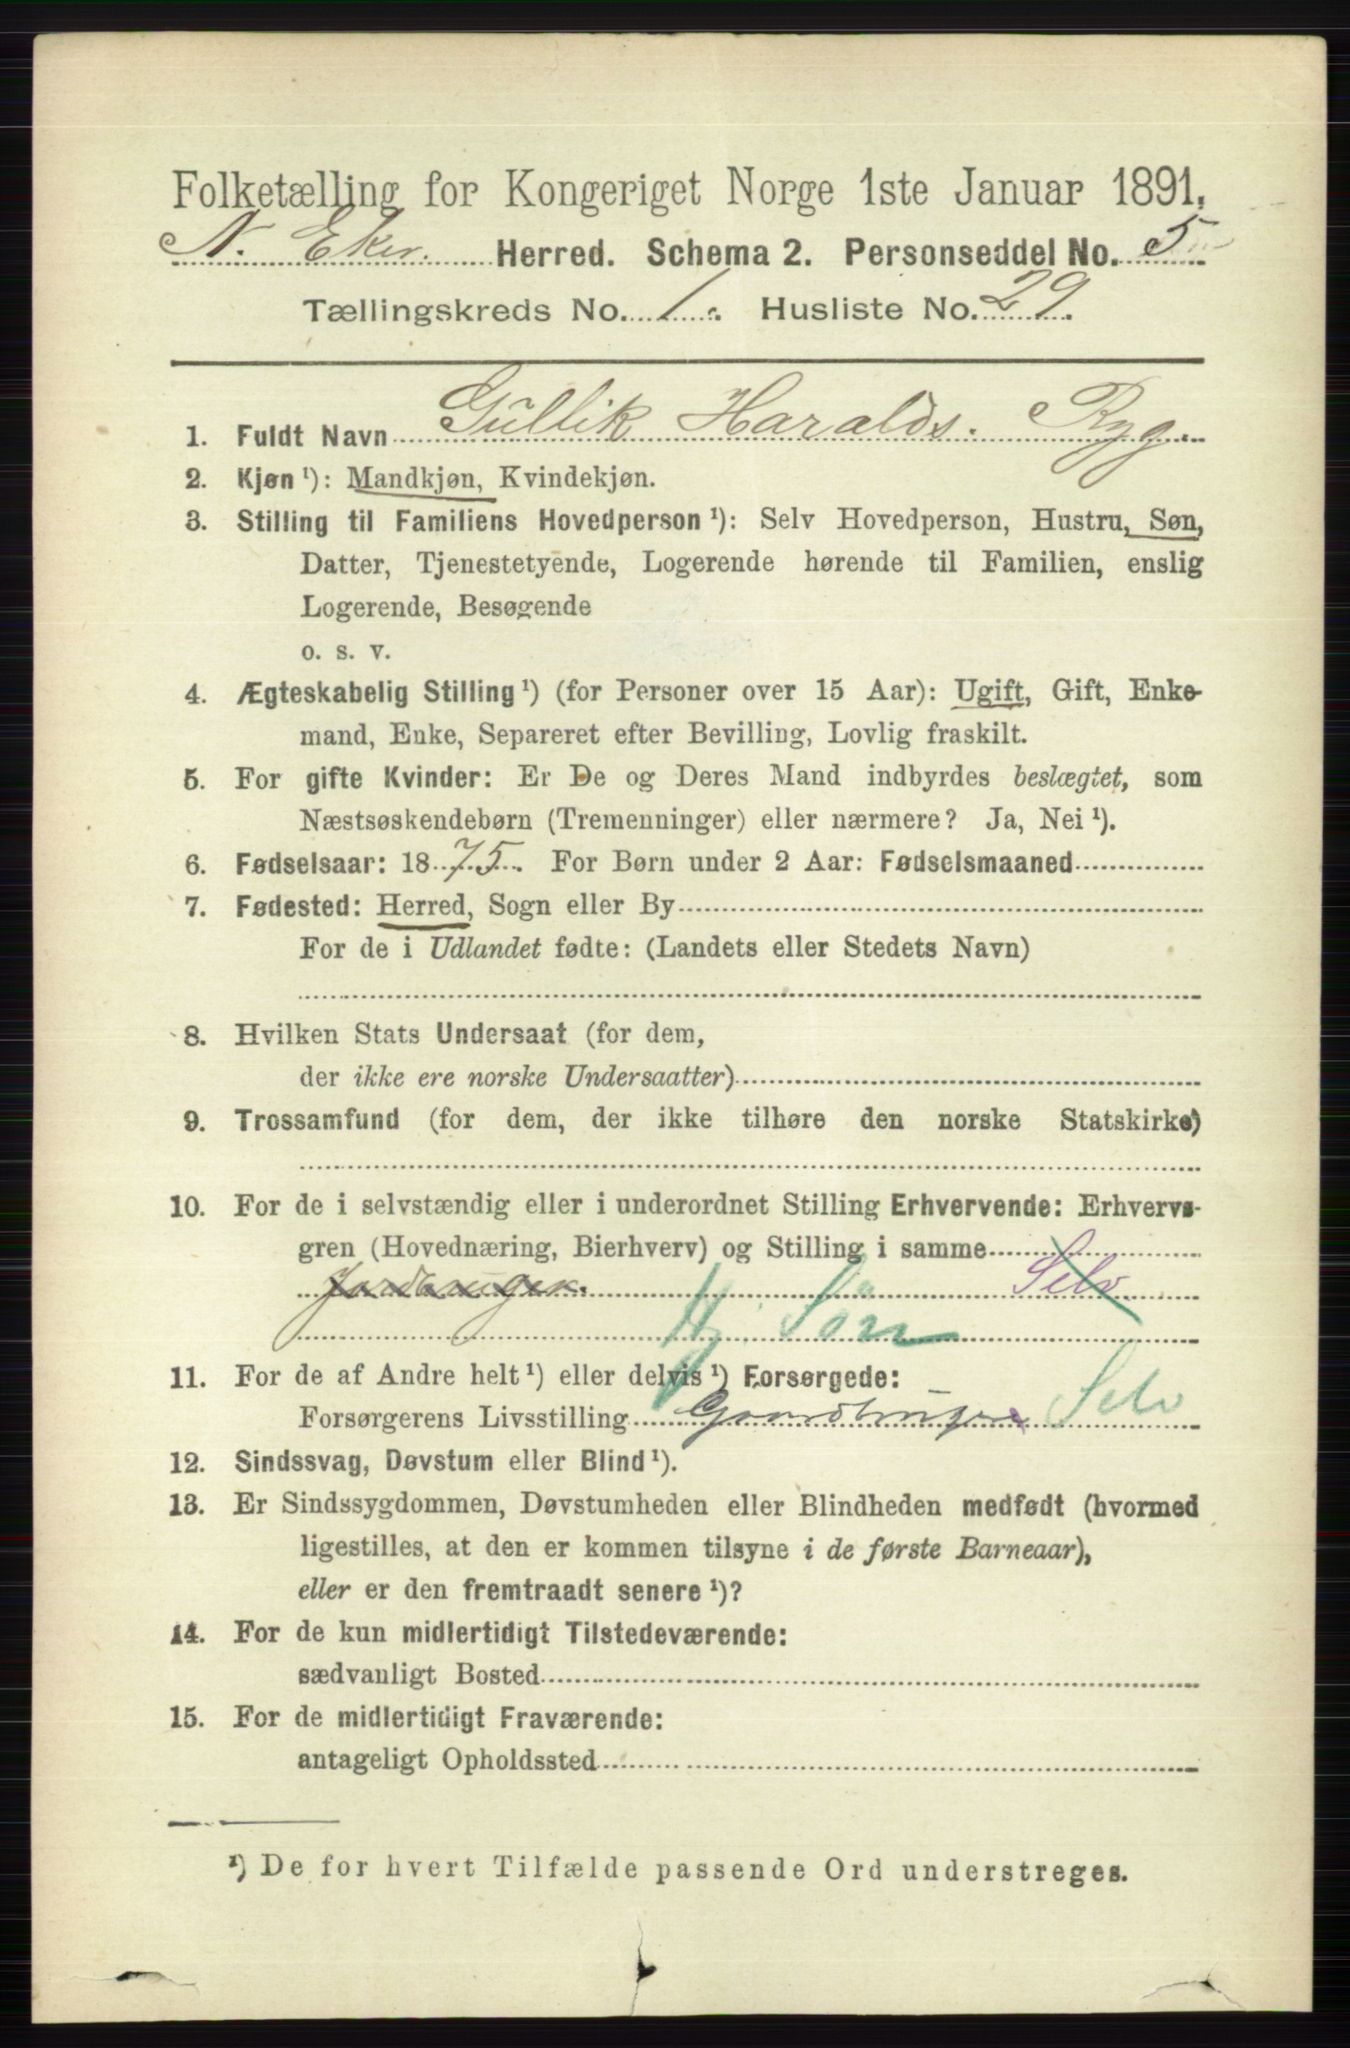 Folketælling for Kongeriget Norge 1ste Januar 1891.
N. Eker. Herred. Schema 2. Personseddel No. 5
Tællingskreds No. 1. Husliste No. 29.
1. Fuldt Navn Gullik Haralds. Ryg.
2. Kjøn ¹): Mandkjøn, Kvindekjøn.
3. Stilling til Familiens Hovedperson ¹): Selv Hovedperson, Hustru, Søn,
Datter, Tjenestetyende, Logerende hørende til Familien, enslig
Logerende, Besøgende
o. s. v.
4. Ægteskabelig Stilling ¹) (for Personer over 15 Aar): Ugift, Gift, Enke-
mand, Enke, Separeret efter Bevilling, Lovlig fraskilt.
5. For gifte Kvinder: Er De og Deres Mand indbyrdes beslægtet, som
Næstsøskendebørn (Tremenninger) eller nærmere? Ja, Nei ¹).
6. Fødselsaar: 1875. For Børn under 2 Aar: Fødselsmaaned
7. Fødested: Herred, Sogn eller By
For de i Udlandet fødte: (Landets eller Stedets Navn)
8. Hvilken Stats Undersaat (for dem,
der ikke ere norske Undersaatter)
9. Trossamfund (for dem, der ikke tilhøre den norske Statskirke)
10. For de i selvstændig eller i underordnet Stilling Erhvervende: Erhvervs-
gren (Hovednæring, Bierhverv) og Stilling i samme
Jordbruger. Selv.
Hj. Søn
11. For de af Andre helt ¹) eller delvis ¹) Forsørgede:
Forsørgerens Livsstilling Gaardbruger Selv
12. Sindssvag, Døvstum eller Blind ¹).
13. Er Sindssygdommen, Døvstumheden eller Blindheden medfødt (hvormed
ligestilles, at den er kommen tilsyne i de første Barneaar),
eller er den fremtraadt senere ¹)?
14. For de kun midlertidigt Tilstedeværende:
sædvanligt Bosted
15. For de midlertidigt Fraværende:
antageligt Opholdssted
¹) De for hvert Tilfælde passende Ord understreges.